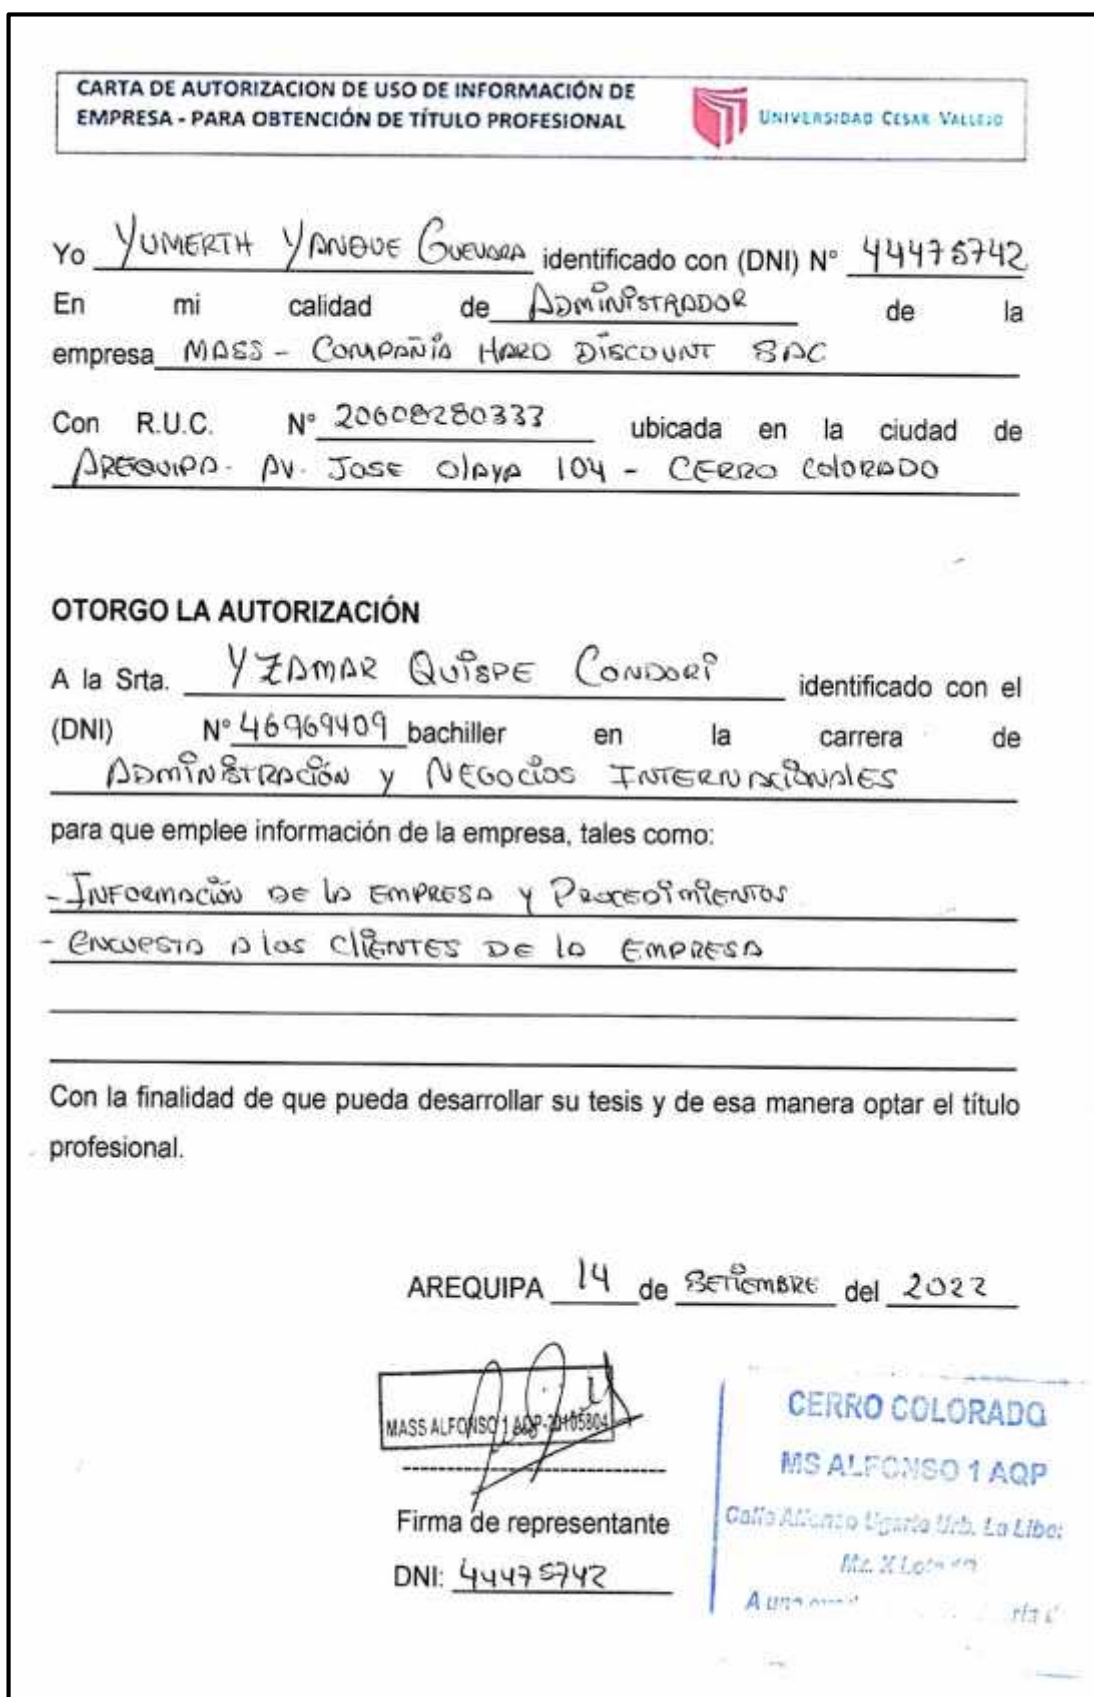 CARTA DE AUTORIZACION DE USO DE INFORMACIÓN DE
EMPRESA - PARA OBTENCIÓN DE TÍTULO PROFESIONAL
UNIVERSIDAD CESAR VALLEJO
Yo YUMERTH YANQUE GUEVARA identificado con (DNI) N° 44475742
En mi calidad de ADMINISTRADOR de la
empresa MASS - COMPAÑIA HARD DISCOUNT SAC
Con R.U.C. N° 20608280333 ubicada en la ciudad de
AREQUIPA. AV. JOSE OLAYA 104 - CERRO COLORADO
OTORGO LA AUTORIZACIÓN
A la Srta. YZAMAR QUISPE CONDORI identificado con el
(DNI) N° 46969409 bachiller en la carrera de
ADMINISTRACIÓN Y NEGOCIOS INTERNACIONALES
para que emplee información de la empresa, tales como:
- INFORMACIÓN DE LA EMPRESA Y PROCEDIMIENTOS
- ENCUESTA A LOS CLIENTES DE LA EMPRESA
Con la finalidad de que pueda desarrollar su tesis y de esa manera optar el título
profesional.
AREQUIPA 14 de SETIEMBRE del 2022
MASS ALFONSO 1 AQP-20105804
Firma de representante
DNI: 44475742
CERRO COLORADO
MS ALFONSO 1 AQP
Calle Alfonso Ugarte Urb. La Liber
Mz. X
A una